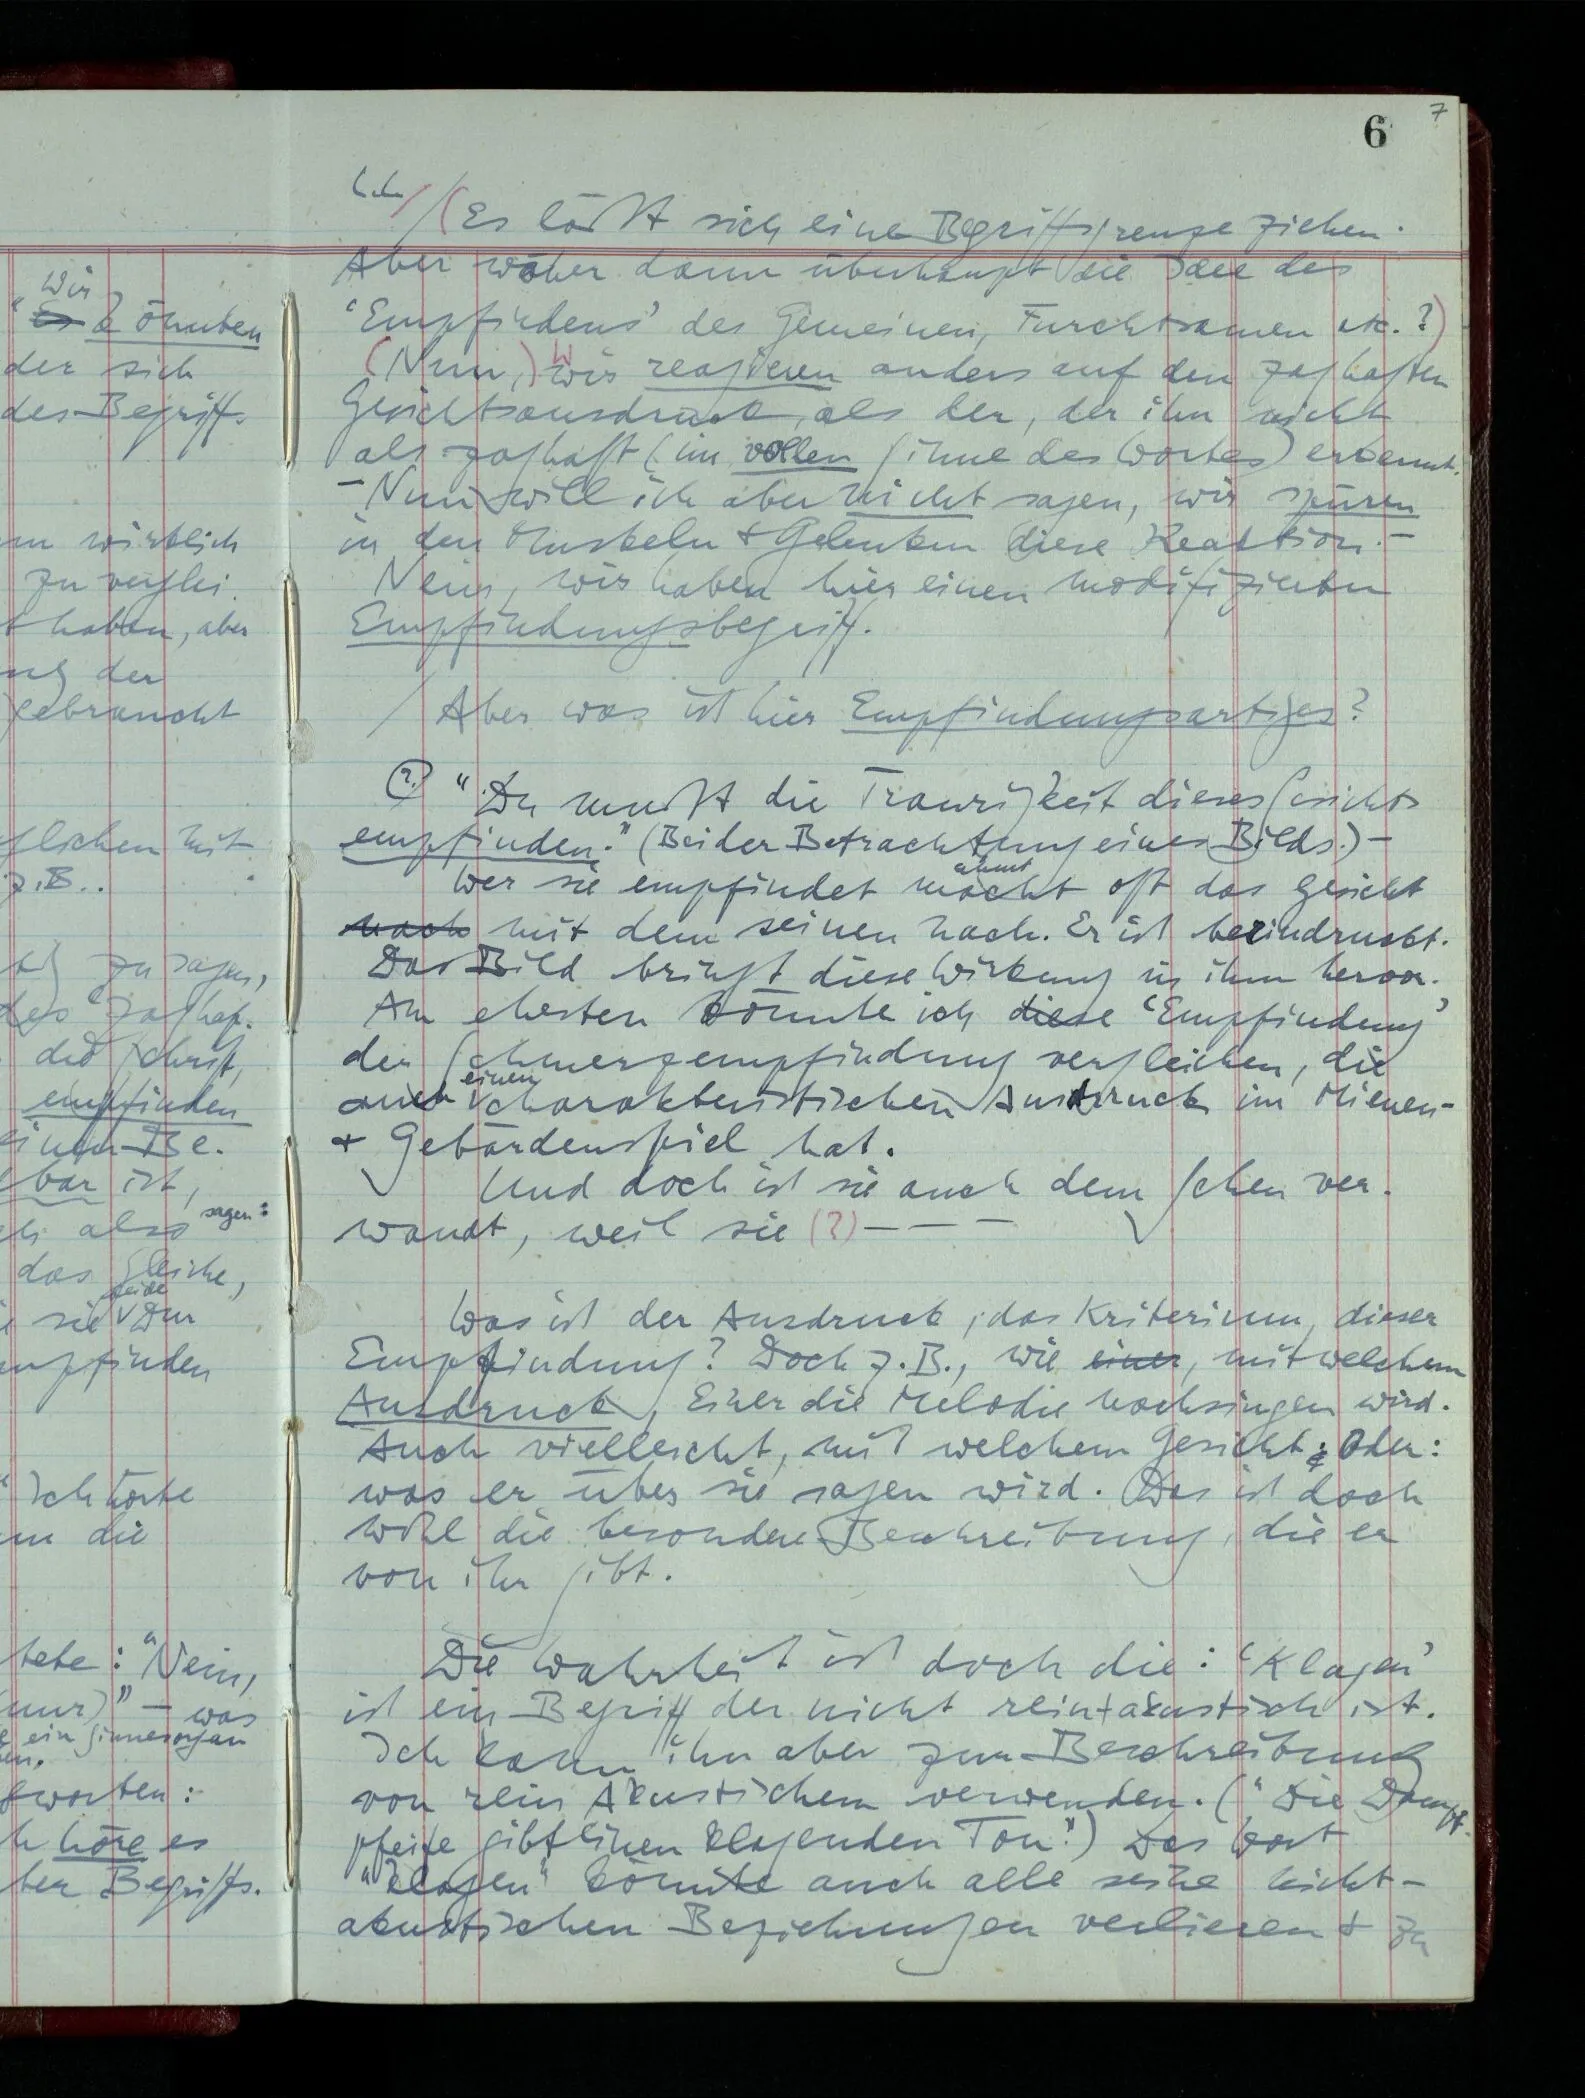 6
7
/ (Es läßt sich eine Begriffsgrenze ziehen.
Aber woher dann überhaupt die Idee des
‘Empfindens’ des Gemeinen, Furchtsamen etc.?)
(Nun,) Wir reagieren anders auf den zaghaften
Gesichtsausdruck, als der, der ihn nicht
als zaghaft (im vollen Sinne des Wortes) erkennt.
– Nun will ich aber nicht sagen, wir spüren
in den Muskeln & Gelenken diese Reaktion. –
Nein, wir haben hier einen modifizierten
Empfindungsbegriff.
/ Aber was ist hier Empfindungsartiges?
(?) “Du mußt die Traurigkeit dieses Gesichts
empfinden.” (Bei der Betrachtung eines Bilds.) –
Wer sie empfindet macht ahmt oft das Gesicht
nach mit dem seinen nach. Er ist beeindruckt.
Das Bild bringt diese Wirkung in ihm hervor.
Am ehesten könnte ich diese ‘Empfindung’
der Schmerzempfindung vergleichen, die
auch einen charakteristischen Ausdruck im Mienen-
& Gebärdenspiel hat.
Und doch ist sie auch dem Sehen ver-
wandt, weil sie (?) – – –
Was ist der Ausdruck, das Kriterium, dieser
Empfindung? Doch z.B., wie einer, mit welchem
Ausdruck, Einer die Melodie nachsingen wird.
Auch vielleicht, mit welchem Gesicht; Oder:
was er über sie sagen wird. Das ist doch
wohl die besondere Beschreibung, die er
von ihr gibt.
Die Wahrheit ist doch die: ‘Klagen’
ist ein Begriff der nicht rein akustisch ist.
Ich kann ihn aber zur Beschreibung
von rein Akustischem verwenden. (“Die Dampf-
pfeife gibt einen klagenden Ton.”) Das Wort
“klagen” könnte auch alle seine nicht-
akustischen Beziehungen verlieren & zu
Wir
“Es könnten
der sich
des Begriffs
wirklich
zu verglei.
haben, aber
der
gebraucht
mit
z.B..
zu sagen,
des zaghaf-
die Schrift,
empfinden
einen Be-
bar ist,
also sagen:
das Gleiche,
sie beide Dur
empfinden
“Ich hörte
die
“Nein,
nur)” – was
ein Sinnesorgan
hören es
Begriffs.